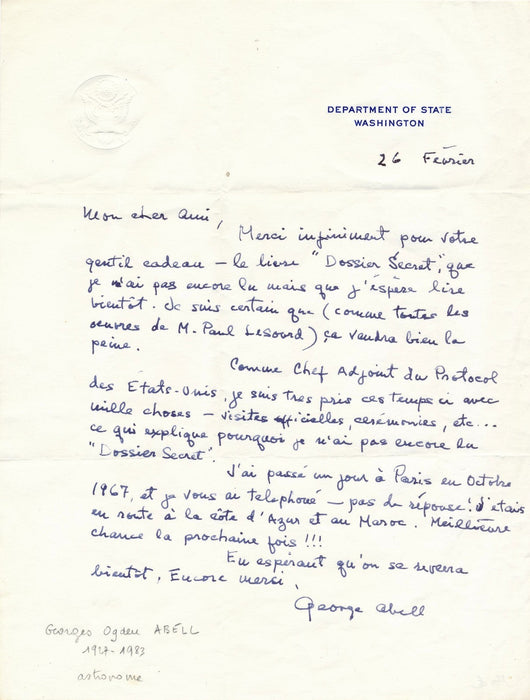 DEPARTMENT OF STATE
WASHINGTON
26 Février
Mon cher ami,
Merci infiniment pour votre
gentil cadeau – le livre "Dossier Secret", que
je n'ai pas encore lu mais que j'espère lire
bientôt. Je suis certain que (comme toutes les
oeuvres de M. Paul Lesourd) ça vaudra bien la
peine.
Comme Chef Adjoint du Protocol
des Etats-Unis, je suis tres pris ces temps ci avec
mille choses – visites officielles, cerémonies, etc...
ce qui explique pourquoi je n'ai pas encore lu
"Dossier Secret".
J'ai passé un jour à Paris en Octobre
1967, et je vous ai telephoné – pas de réponse! J'etais
en route à la côte d'Azur et au Maroc. Meilleure
chance la prochaine fois !!!
En espérant qu'on se reverra
bientôt. Encore merci,
George Abell
Georges Ogden ABELL
1927-1983
astronome